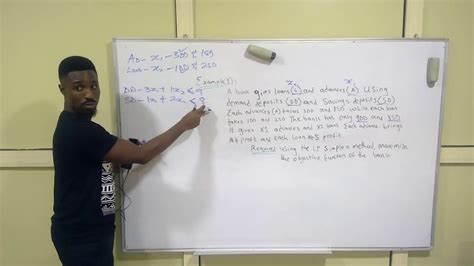 AD - x₁ - 300 & 150
Loan - x₂ - 100 & 250
DD - 3x₁ + 1x₂ ≤ 9
SD - 1x₁ + 2x₂ ≤
Example(1):
x₂ x₁
A bank gives loans (L) and advances (A) Using
demand deposits (DD) and Savings deposits (SD)
Each advances (A) takes 300 and 150 while each loan
takes 100 and 250 The bank has only 900 and 850
It gives X₁ advances and X₂ loans Each advance brings
profit and each loan profit
Required Using the LP Simplex method, maximize
the objective function of the bank